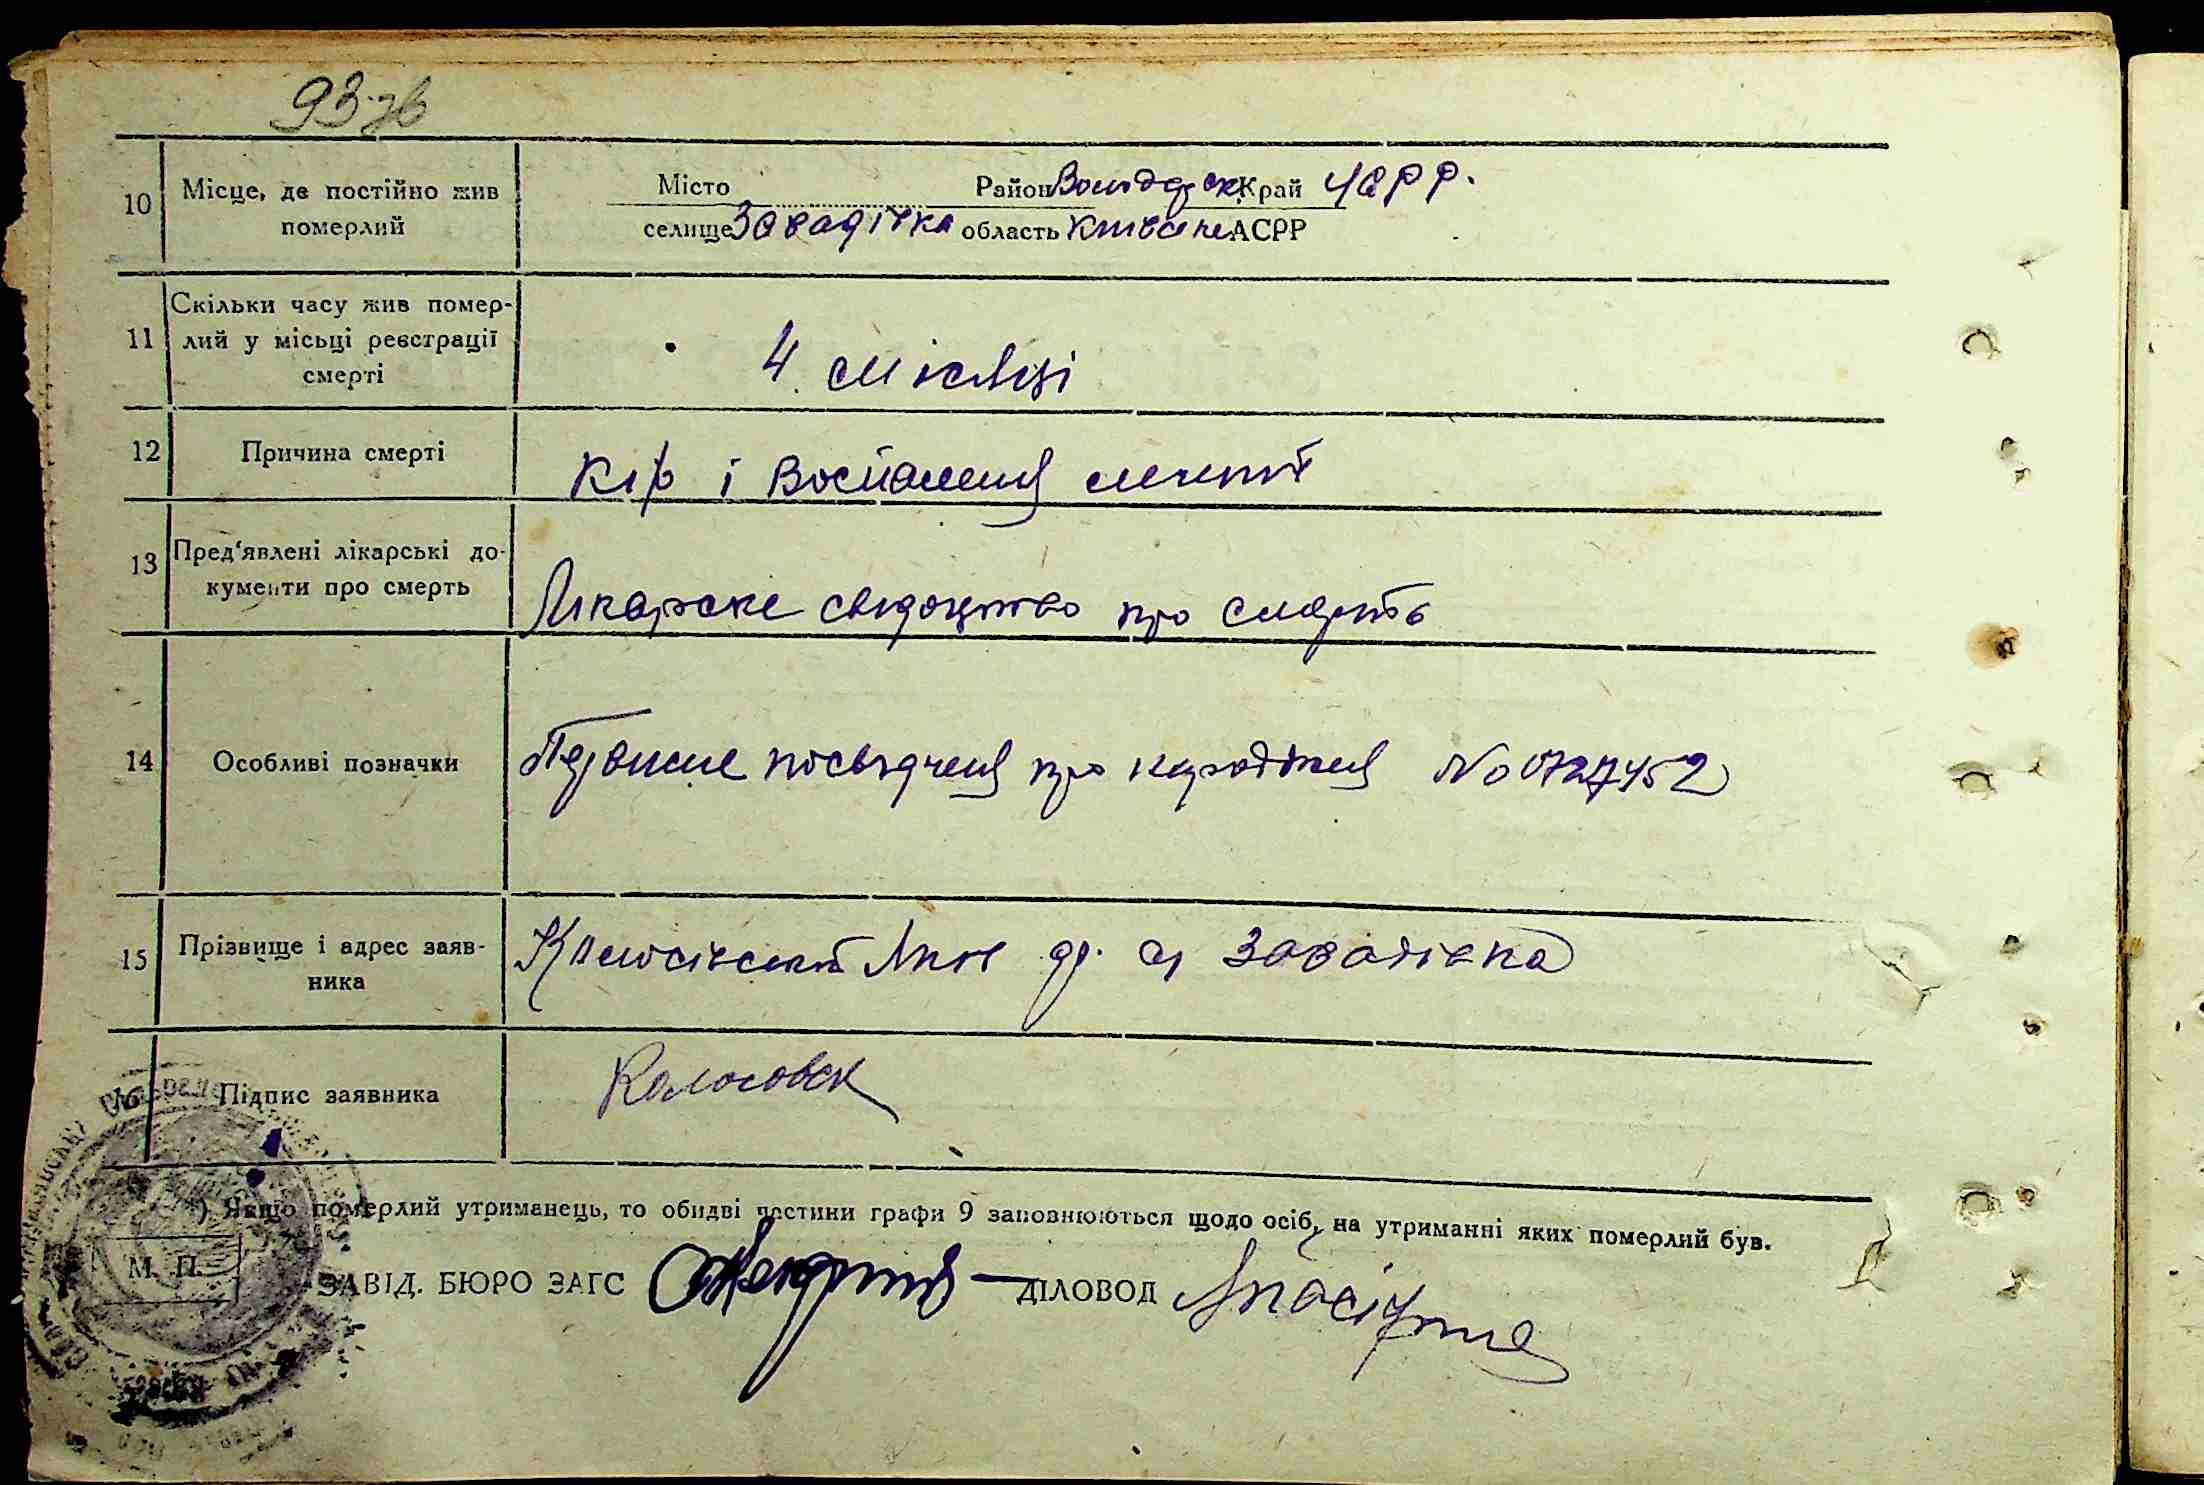 93 зв
10 Місце, де постійно жив померлий
Місто Район Володарск Край УСРР.
селище Завадівка область Київске АСРР
11 Скільки часу жив помер-
лий у місьці реєстрації
смерті
4 місяці
12 Причина смерті
Кір і Воспаленя легенів
13 Пред'явлені лікарські до-
кументи про смерть
Лікарське свідоцтво про смерть
14 Особливі позначки
посвідченя про народженя № 0727452
15 Прізвище і адрес заяв-
ника
Колосівский с Завадівка
16 Підпис заявника
Колосовск
*) Якщо померлий утриманець, то обидві частини графи 9 заповнюються щодо осіб, на утриманні яких померлий був.
М. П.
ЗАВІД. БЮРО ЗАГС ДІЛОВОД